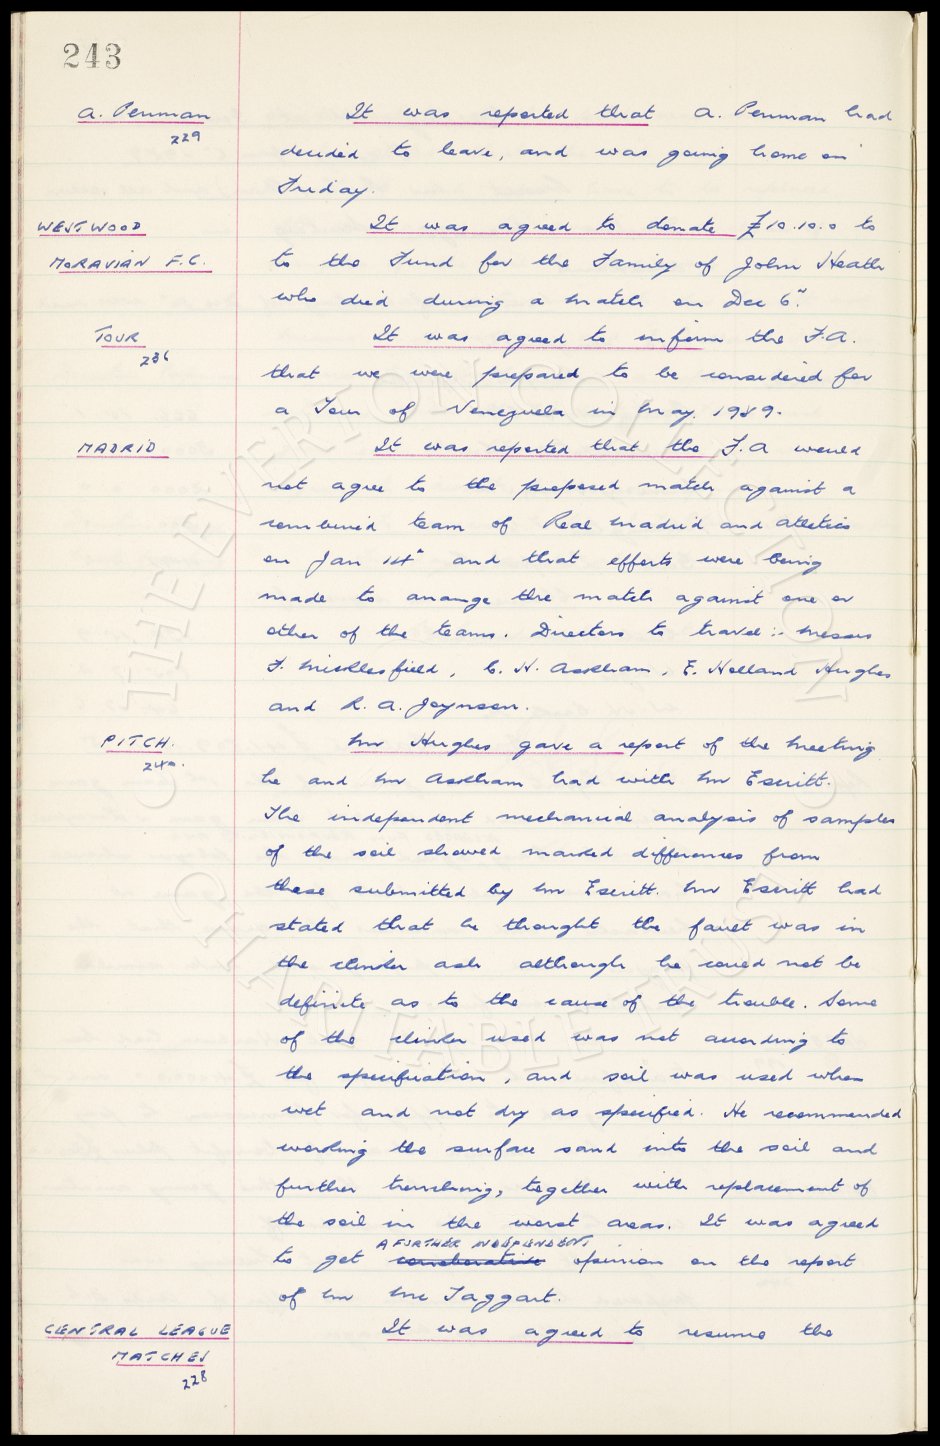 243
A. Penman
229
It was reported that A. Penman had
decided to leave, and was going home on
Friday.
WESTWOOD
MORAVIAN F.C.
It was agreed to donate £10.10.0 to
to the Fund for the Family of John Heath
who died during a match on Dec 6th.
TOUR
236
It was agreed to inform the F.A.
that we were prepared to be considered for
a Tour of Venezuela in May 1959.
MADRID
It was reported that the F.A would
not agree to the proposed match against a
combined team of Real Madrid and Atletico
on Jan 14th and that efforts were being
made to arrange the match against one or
other of the teams. Directors to travel :- Messrs
F. Micklesfield, C. H. Askham, E. Holland Hughes
and R. A. Joynson.
PITCH.
240.
Mr Hughes gave a report of the meeting
he and Mr Askham had with Mr Escritt.
The independent mechanical analysis of samples
of the soil showed marked differences from
those submitted by Mr Escritt. Mr Escritt had
stated that he thought the fault was in
the clinker ash although he could not be
definite as to the cause of the trouble. Some
of the clinker used was not according to
the specification, and soil was used when
wet and not dry as specified. He recommended
working the surface sand into the soil and
further trenching, together with replacement of
the soil in the worst areas. It was agreed
A FURTHER INDEPENDENT
to get opinion on the report
of Mr Mc Taggart.
CENTRAL LEAGUE
MATCHES
228
It was agreed to resume the
© THE EVERTON COLLECTION
CHARITABLE TRUST